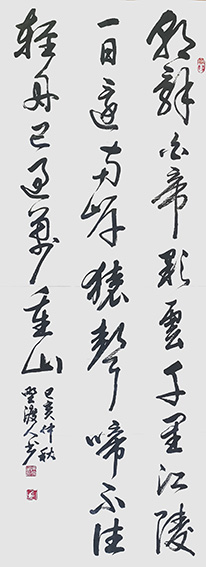 朝辭白帝彩雲千里江陵
一日還兩岸猿聲啼不住
輕舟已過萬重山
己亥仲秋
渡人书